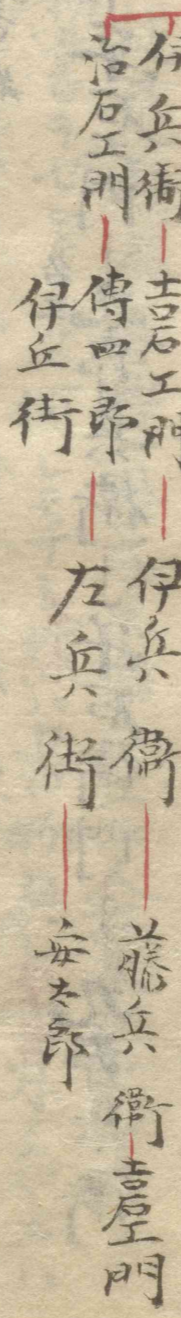 伊兵衞 吉右エ門 伊兵衞 藤兵衞 吉右エ門
治右エ門 傳四郎 左兵衛 安太郎
伊丘衛